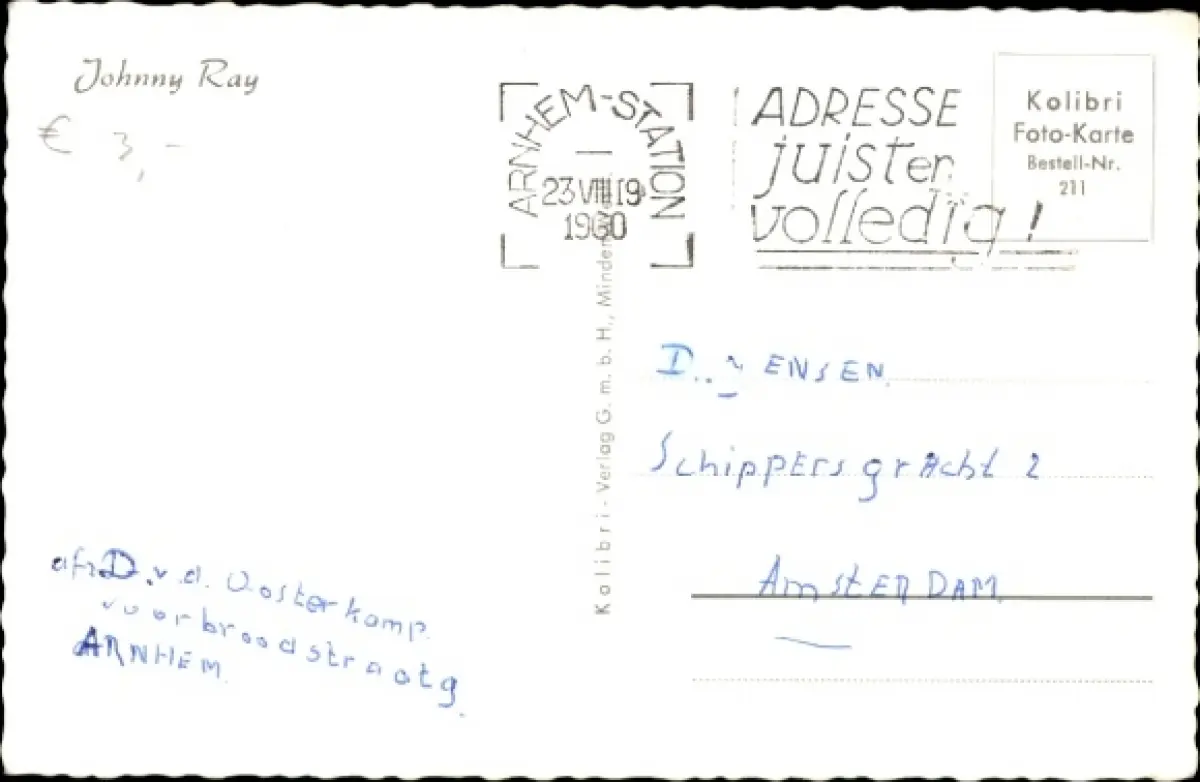 Johnny Ray
€ 3,-
ARNHEM-STATION
23 VIII 19
1960
ADRESSE
juist en
volledig!
Kolibri
Foto-Karte
Bestell-Nr.
211
Kolibri-Verlag G. m. b. H., Minden
ENSEN
Schippersgracht 2
AMSTERDAM
afz D. v. d. Oosterkamp
voorbroodstraat 9
ARNHEM